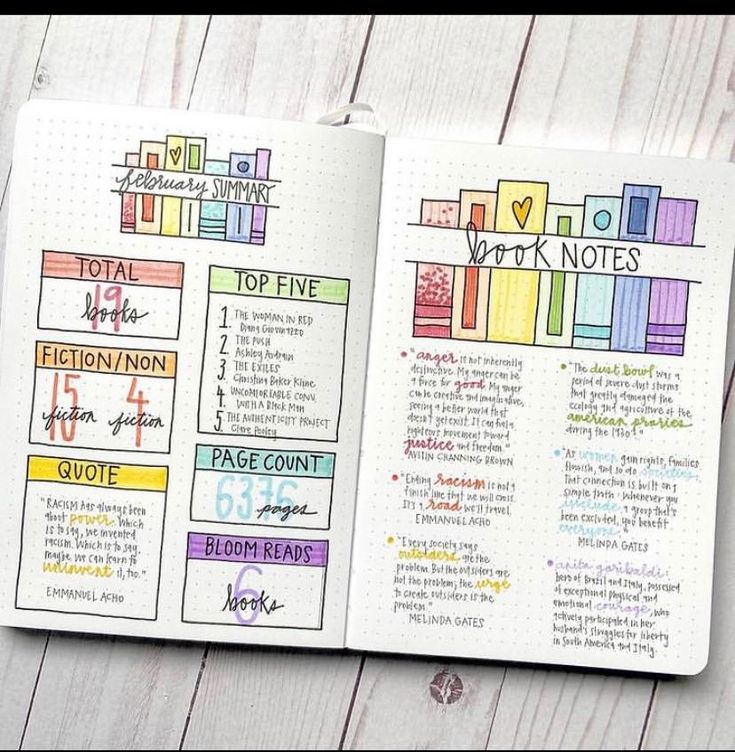 february SUMMARY
TOTAL
19
books
FICTION/NON
15 4
fiction fiction
QUOTE
"RACISM has always been
about power. Which
is to say, we invented
racism. Which is to say,
maybe we can learn to
uninvent it, too."
EMMANUEL ACHO
TOP FIVE
1. THE WOMAN IN RED
Diana Giovinazzo
2. THE PUSH
Ashley Audrain
3. THE EXILES
Christina Baker Kline
4. UNCOMFORTABLE CONV.
WITH A Black Man
5. THE AUTHENTICITY PROJECT
Clare Pooley
PAGE COUNT
6376
pages
BLOOM READS
6
books
book NOTES
"anger is not inherently
destructive. My anger can be
a force for good. My anger
can be creative and imaginative,
seeing a better world that
doesn't yet exist. It can fuel a
righteous movement toward
justice and freedom."
AUSTIN CHANNING BROWN
"Ending racism is not a
finish line that we will cross.
It's a road we'll travel.
EMMANUEL ACHO
"Every society says
outsiders are the
problem. But the outsiders are
not the problem; the urge
to create outsiders is the
problem."
MELINDA GATES
"The dust bowl was a
period of severe dust storms
that greatly damaged the
ecology and agriculture of the
american prairies
during the 1930s"
"As women gain rights, families
flourish, and so do societies.
That connection is built on a
simple truth: Whenever you
include a group that's
been excluded, you benefit
everyone."
MELINDA GATES
"anita garibaldi:
hero of Brazil and Italy, possessed
of exceptional physical and
emotional courage, who
actively participated in her
husband's struggles for liberty
in South America and Italy.